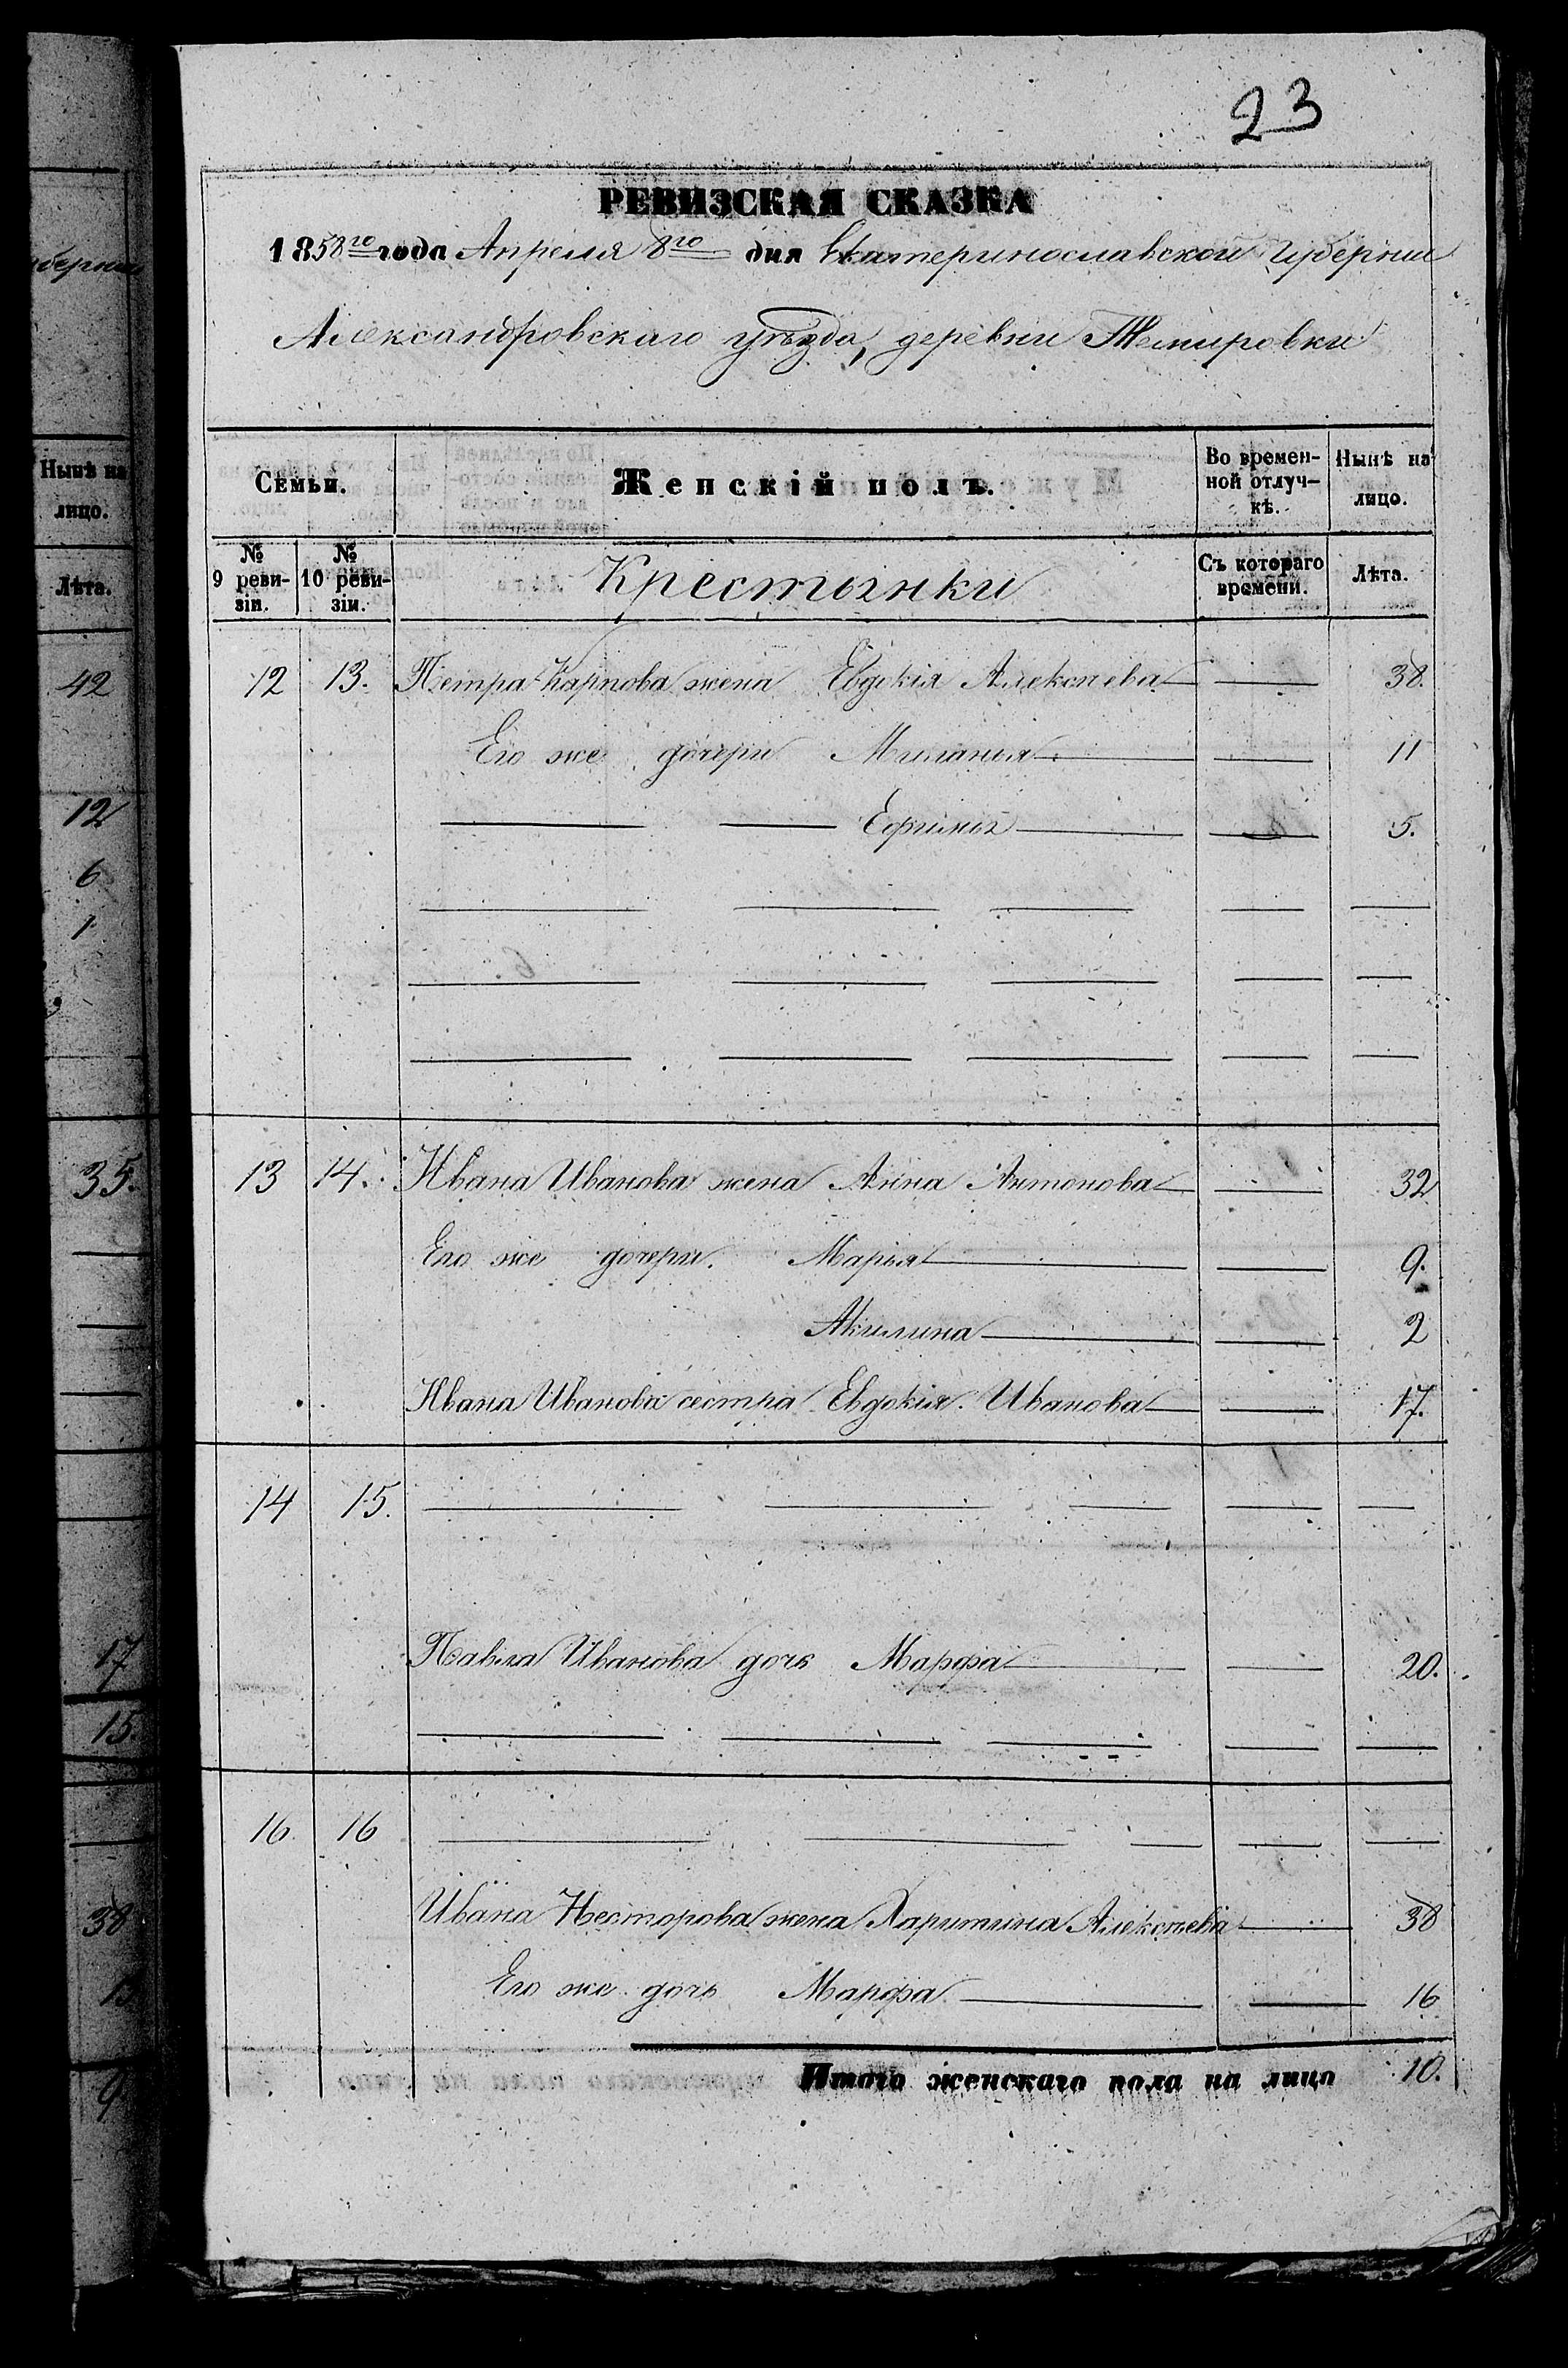 23
РЕВИЗСКАЯ СКАЗКА
1858го года Апреля 8го дня Екатеринославской Губернии
Александровскаго уѣзда, деревни Темировки
Семьи.
Женскій полъ.
Во времен-
ной отлуч-
кѣ.
Нынѣ на
лицо.
№
9 реви-
зіи.
№
10 реви-
зіи.
Крестьянки
Съ котораго
времени.
Лѣта.
12 13. Петра Карпова жена Евдокія Алексѣева 38.
Его же дочери Миланья 11
Ефимья 5.
13 14. Ивана Иванова жена Анна Антонова 32
Его же дочери. Марья 9.
Акилина 2
Ивана Иванова сестра Евдокія Иванова 17.
14 15.
Павла Иванова дочь Марфа 20.
16 16
Ивана Несторова жена Харитина Алексѣева 38
Его же дочь Марфа 16
Итого женскаго пола на лицо 10.
Нынѣ на
лицо.
Лѣта.
42
12
6
1
35.
17
15.
38
9